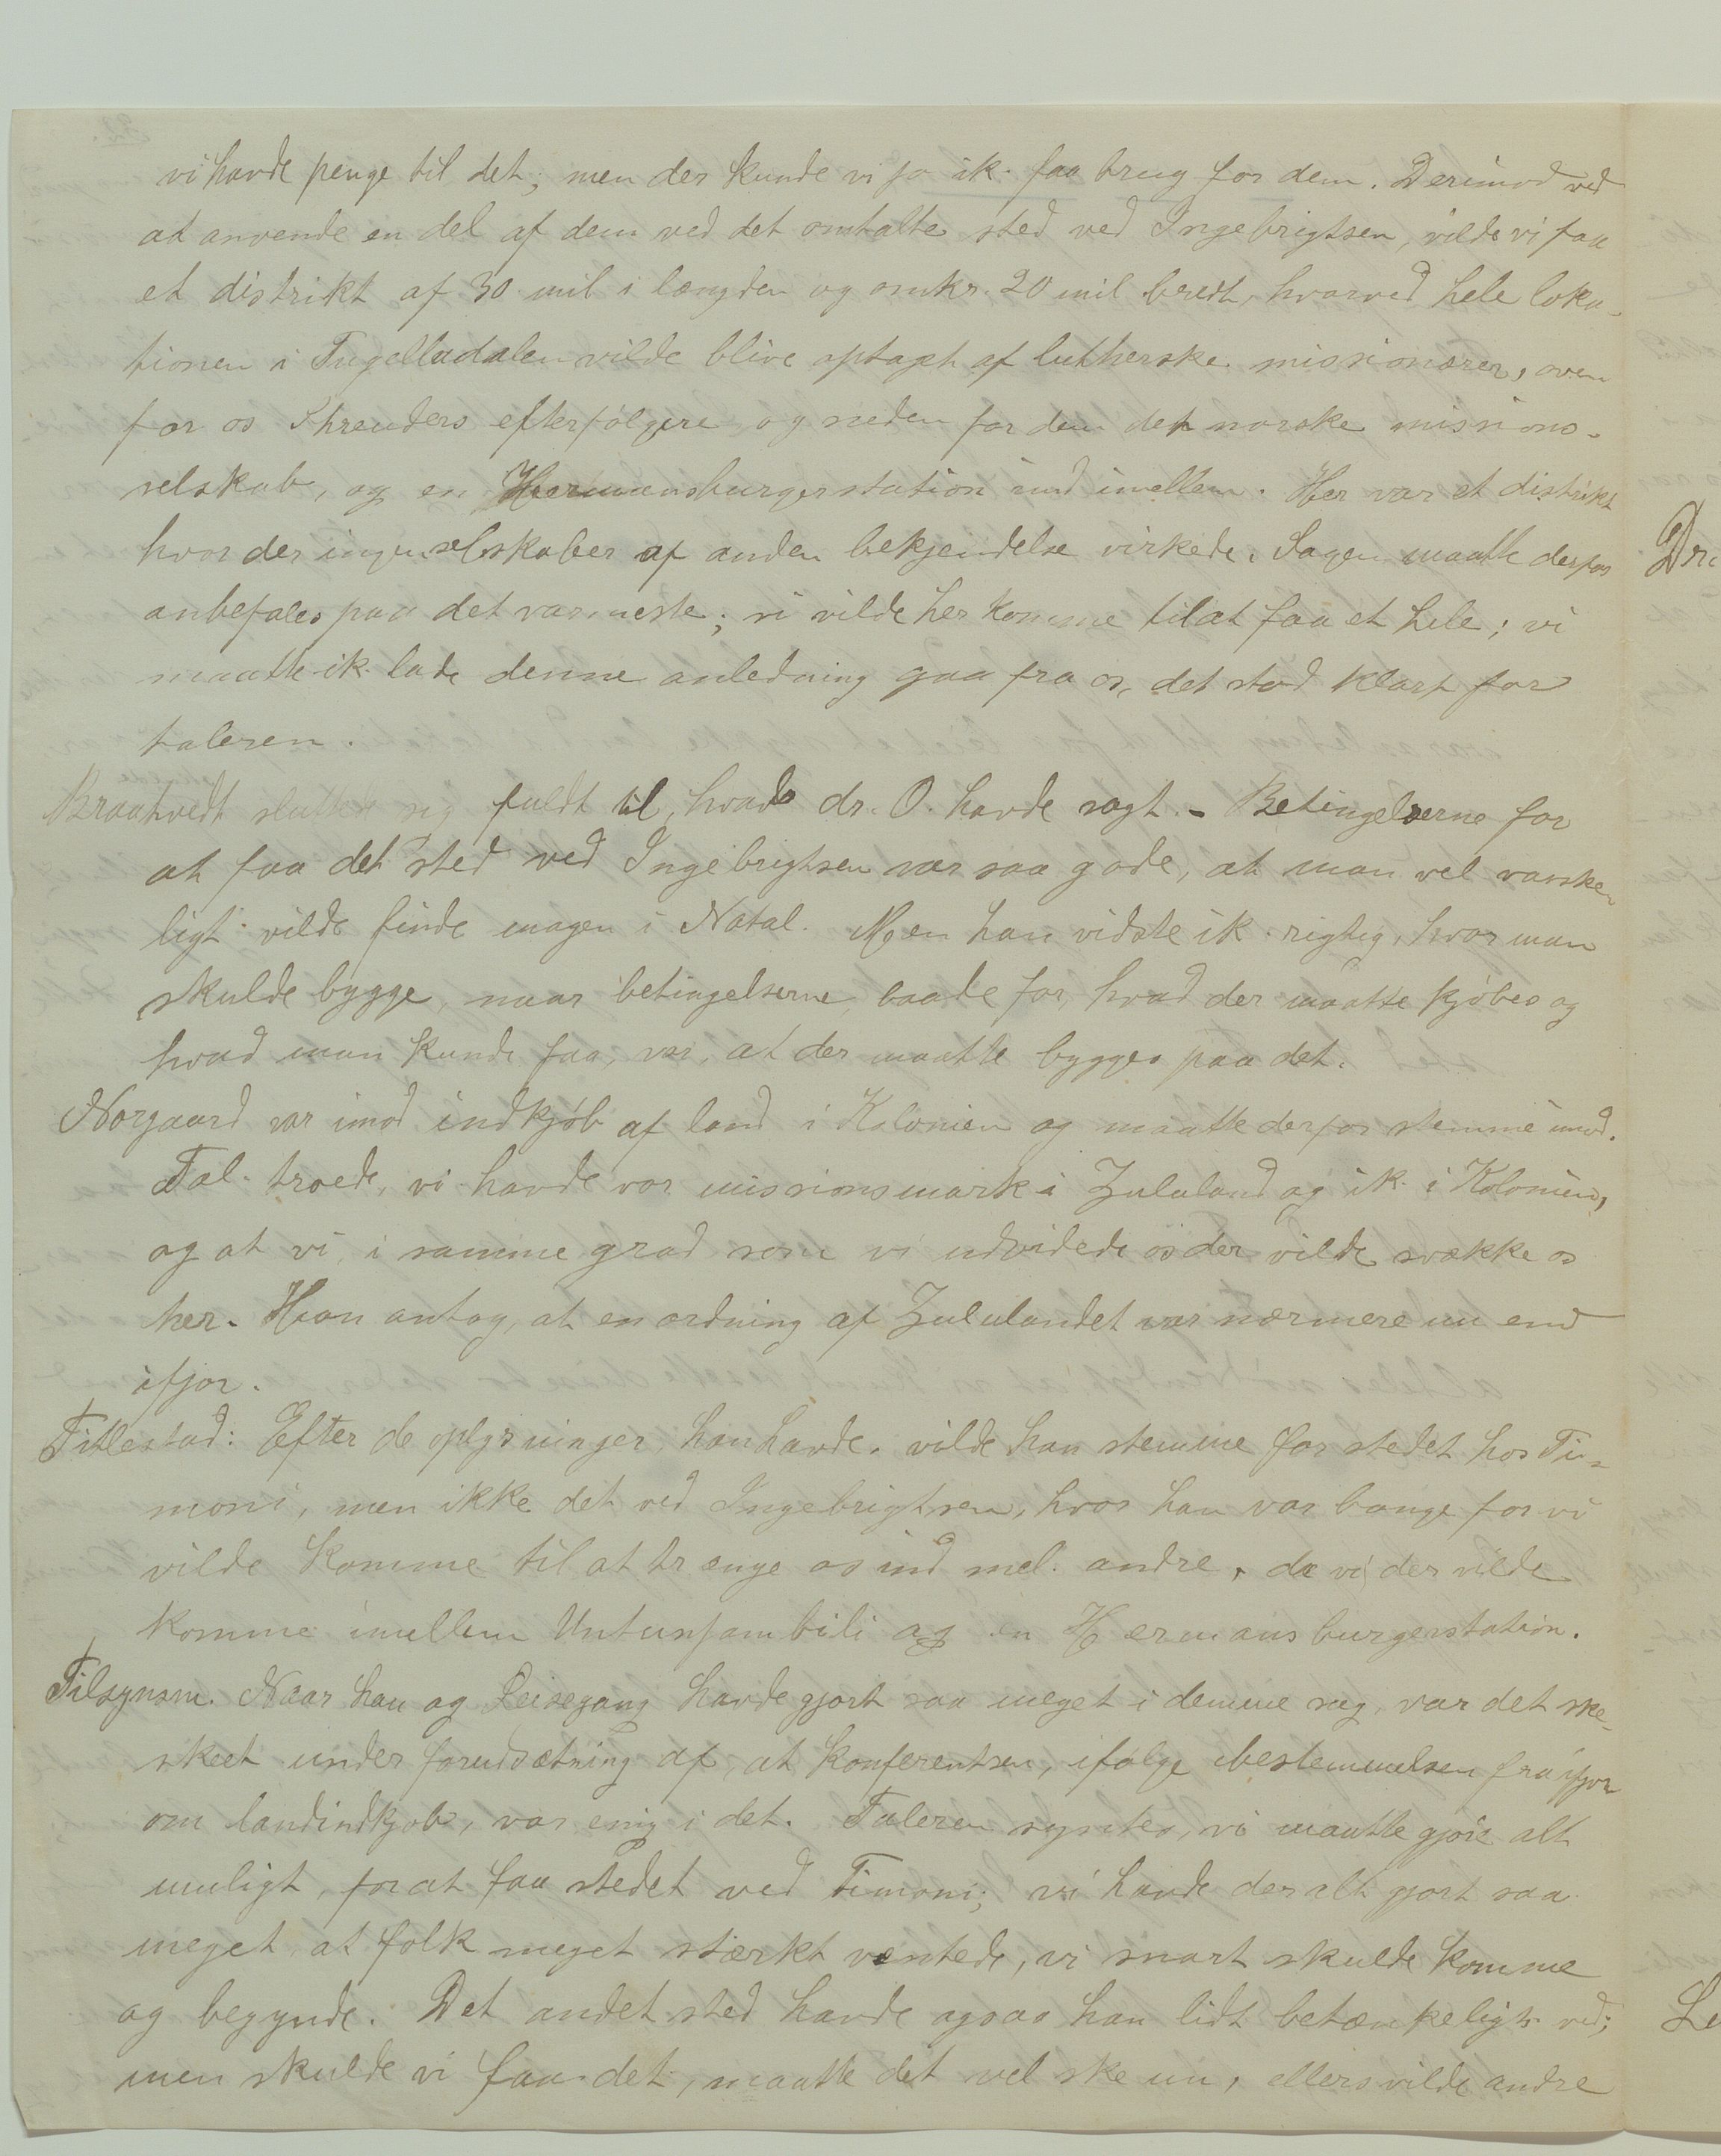 vi havde penge til det; men der kunde vi jo ik. faa brug for dem. Derimod ved
at anvende en del af dem ved det omtalte sted ved Ingebrigtsen, vilde vi faa
et distrikt af 30 mil i længden og omkr. 20 mil bredt, hvorved hele loka-
tionen i Tugelladalen vilde blive optaget af lutherske missionærer, oven
for os Shreuders efterfølgere og neden for dem det norske missions-
selskab, og en Hermansburgerstation ind imellem. Her var et distrikt
hvor der ingen selskaber af anden bekjendelse virkede. Sagen maatte derfor
anbefales paa det varmeste; vi vilde her komme til at faa et hele; vi
maatte ik. lade denne anledning gaa fra os, det stod klart for
taleren.
Braatvedt sluttede sig fuldt til, hvad dr. O. havde sagt. - Betingelserne for
at faa det sted ved Ingebrigtsen var saa gode, at man vel vanske-
ligt vilde finde magen i Natal. Men han vidste ik. rigtig, hvor man
skulde bygge, naar betingelserne, baade for, hvad der maatte kjøbes og
hvad man kunde faa, var, at der maatte bygges paa det.
Norgaard var imod indkjøb af land i Kolonien og maatte derfor stemme imod.
Tal. troede, vi havde vor missionsmark i Zululand og ik. i Kolonien,
og at vi, i samme grad som vi udvidede os der vilde svække os
her. Han antog, at en ordning af Zululandet var nærmere nu end
ifjor.
Titlestad: Efter de oplysninger, han havde, vilde han stemme for stedet hos Ti-
moni, men ikke det ved Ingebrigtsen, hvor han var bange for vi
vilde komme til at trænge os ind mel. andre, da vi der vilde
komme imellem Untunjambili og en Hermansburgerstation.
Tilsynsm. Naar han og Leisegang havde gjort saa meget i denne sag, var det ske-
skeet under forudsætning af, at konferentsen, ifølge bestemmelsen fra ifjor
om landindkjøb, var enig i det. Taleren syntes, vi maatte gjøre alt
muligt, for at faa stedet ved Timoni; vi havde der alt gjort saa
meget, at folk meget stærkt ventede, vi snart skulde komme
og begynde. Det andet sted havde ogsaa han lidt betænkeligt ved;
men skulde vi faa det, maatte det vel ske nu, ellers vilde andre